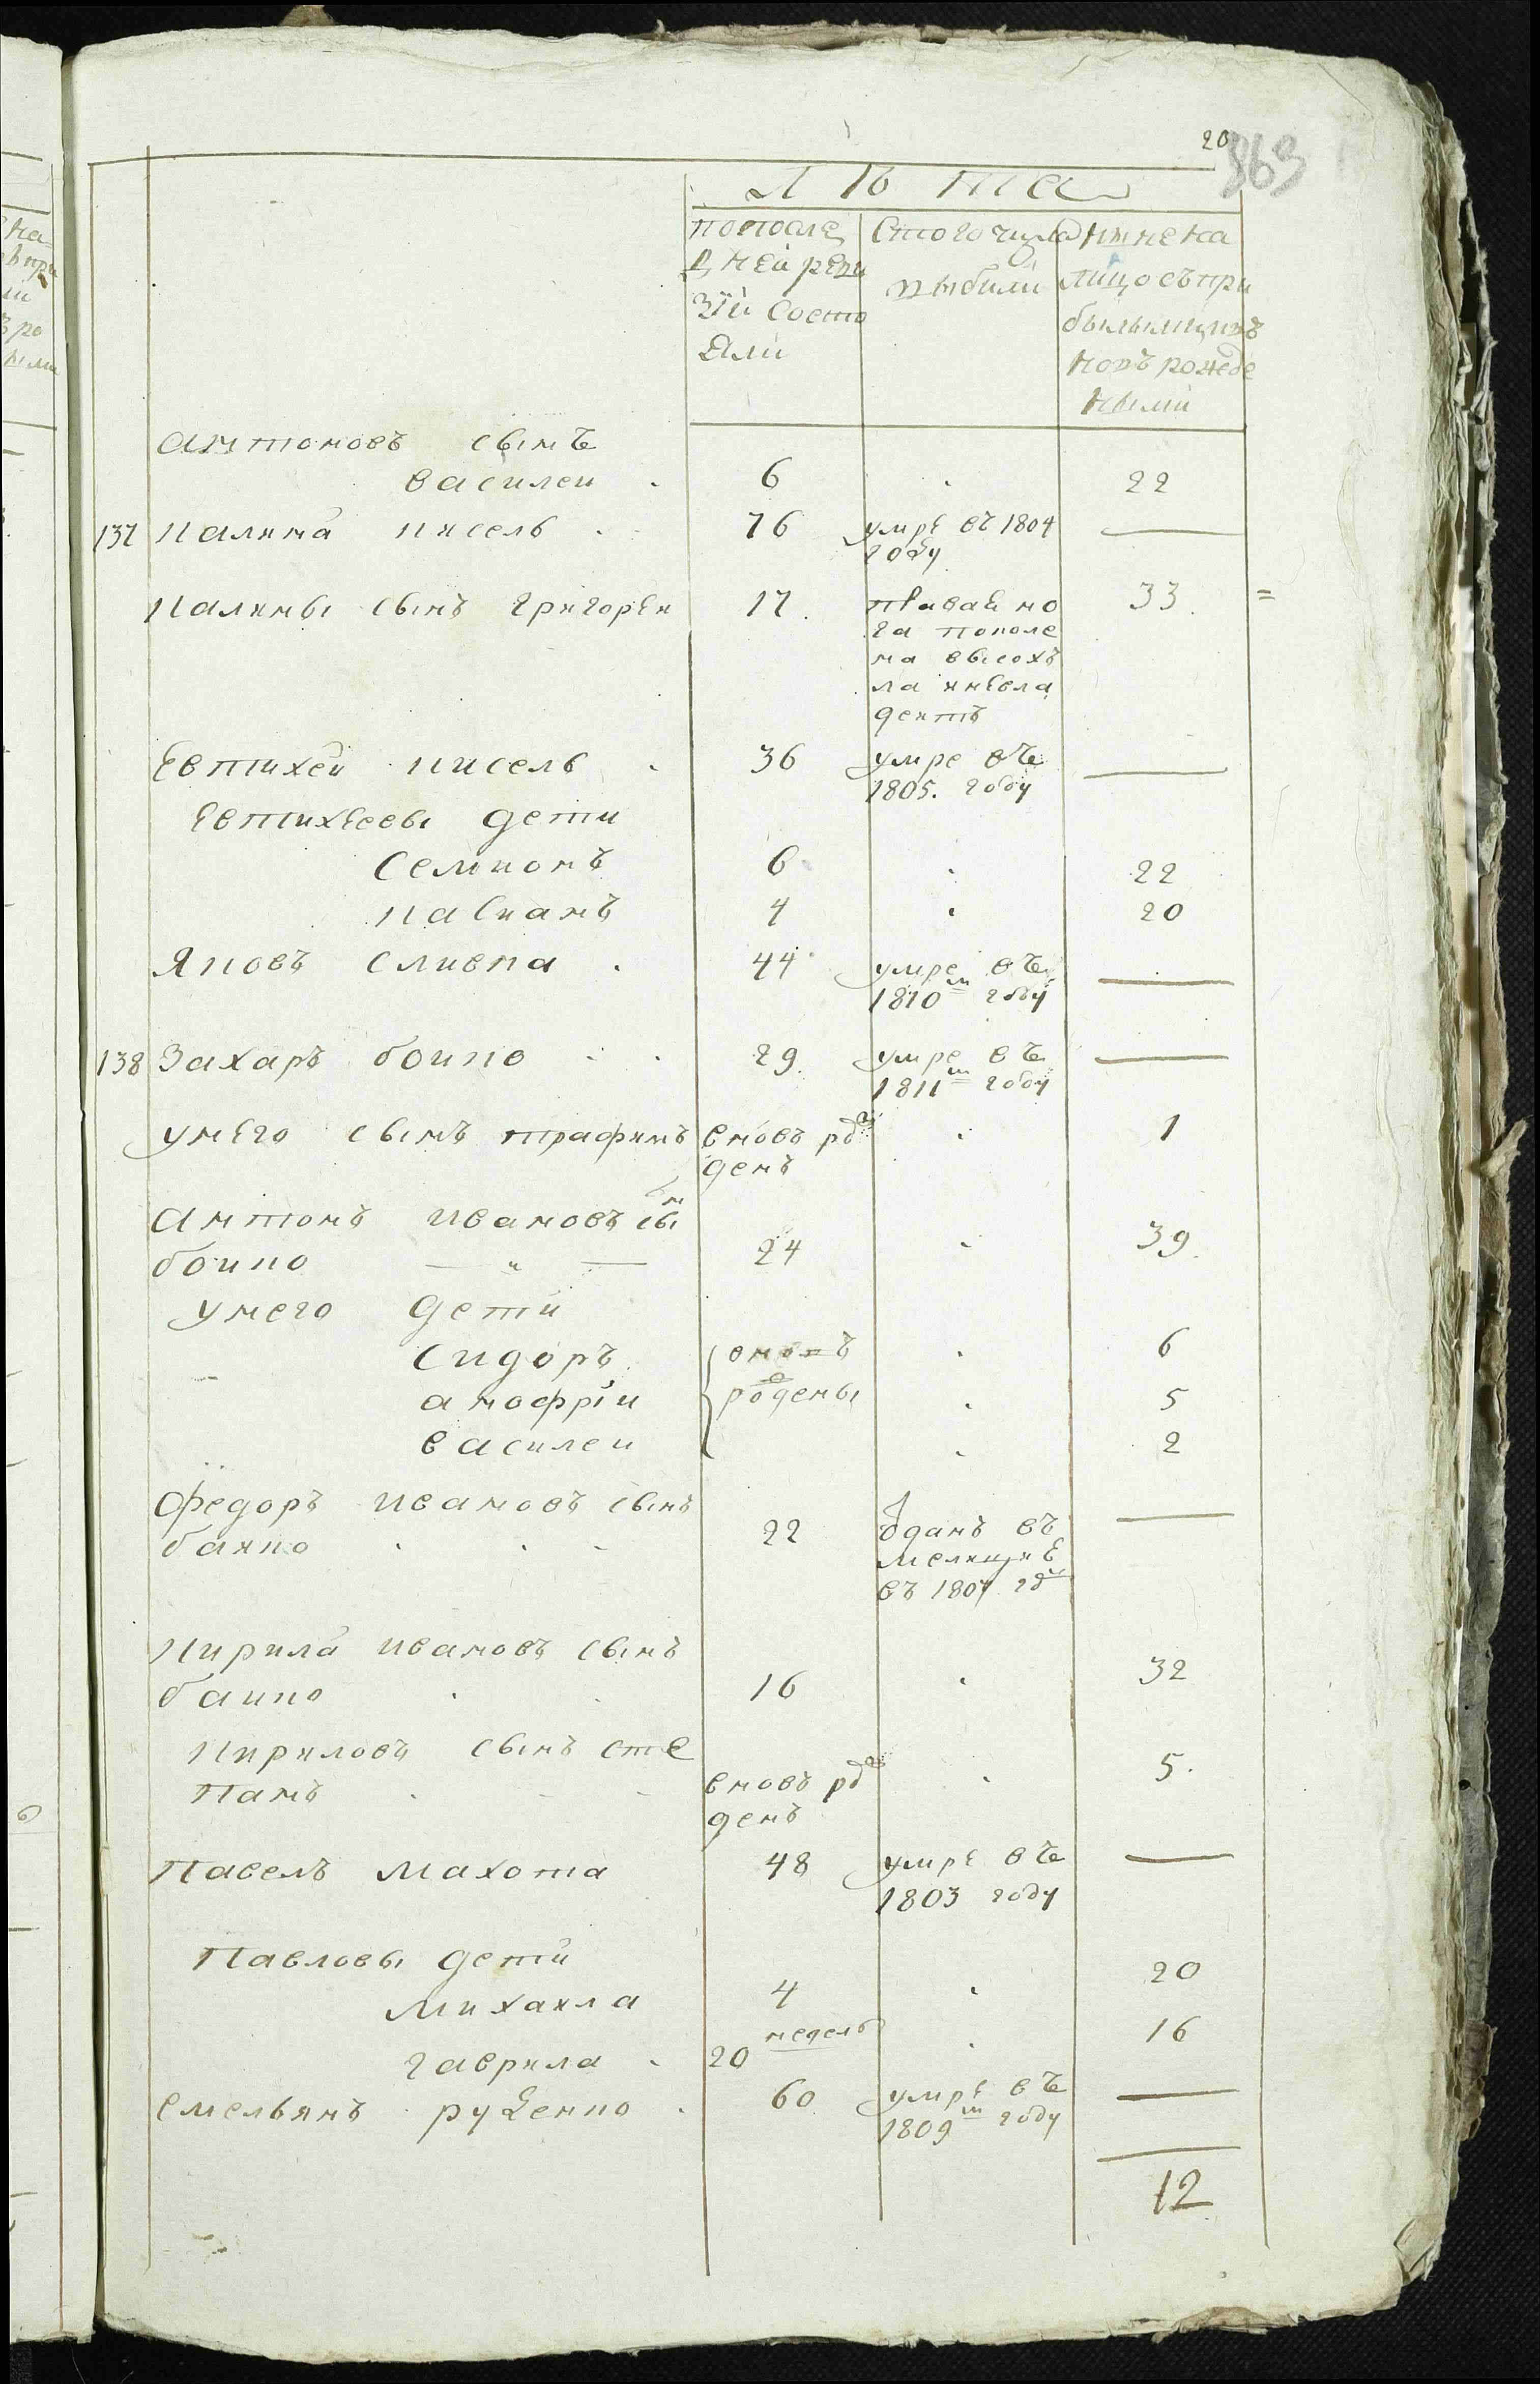 20
863
Лѣта
попосле
дней реви
зіи состо
яли
Стого числа
выбыли
ныне на
лицо съ при
былыми и въ
новъ рожде
ными
антоновъ сынъ
василеи 6 22
137 калина кисель 76 умре въ 1804
году
калины сынъ григореи 17. правая но
га покole
на высох
ла и не вла
деитъ 33.
Евтихеи кисель 36 умре въ
1805. году
Евтихеевы дети
Семионъ 6 22
касианъ 4 20
Яковъ сливка 44 умре въ
1810м году
138 Захаръ боико 29. умре въ
1811м году
у него сынъ трафимъ вновь рож
денъ 1
антонъ ивановъ сын
боико 24 39.
у него дети
сидоръ вновъ 6
анофрiи рождены 5
василеи 2
Федоръ ивановъ сынъ
баико 22 отданъ въ
милицие
въ 1807 году
кирила ивановъ сынъ
баико 16 32
кириловъ сынъ сте
панъ вновь рож
денъ 5.
Павелъ махота 48 умре въ
1803 году
Павловы дети
михаила 4 20
гаврила 20 недель 16
емельянъ руденко 60 умре въ
1809м году
12